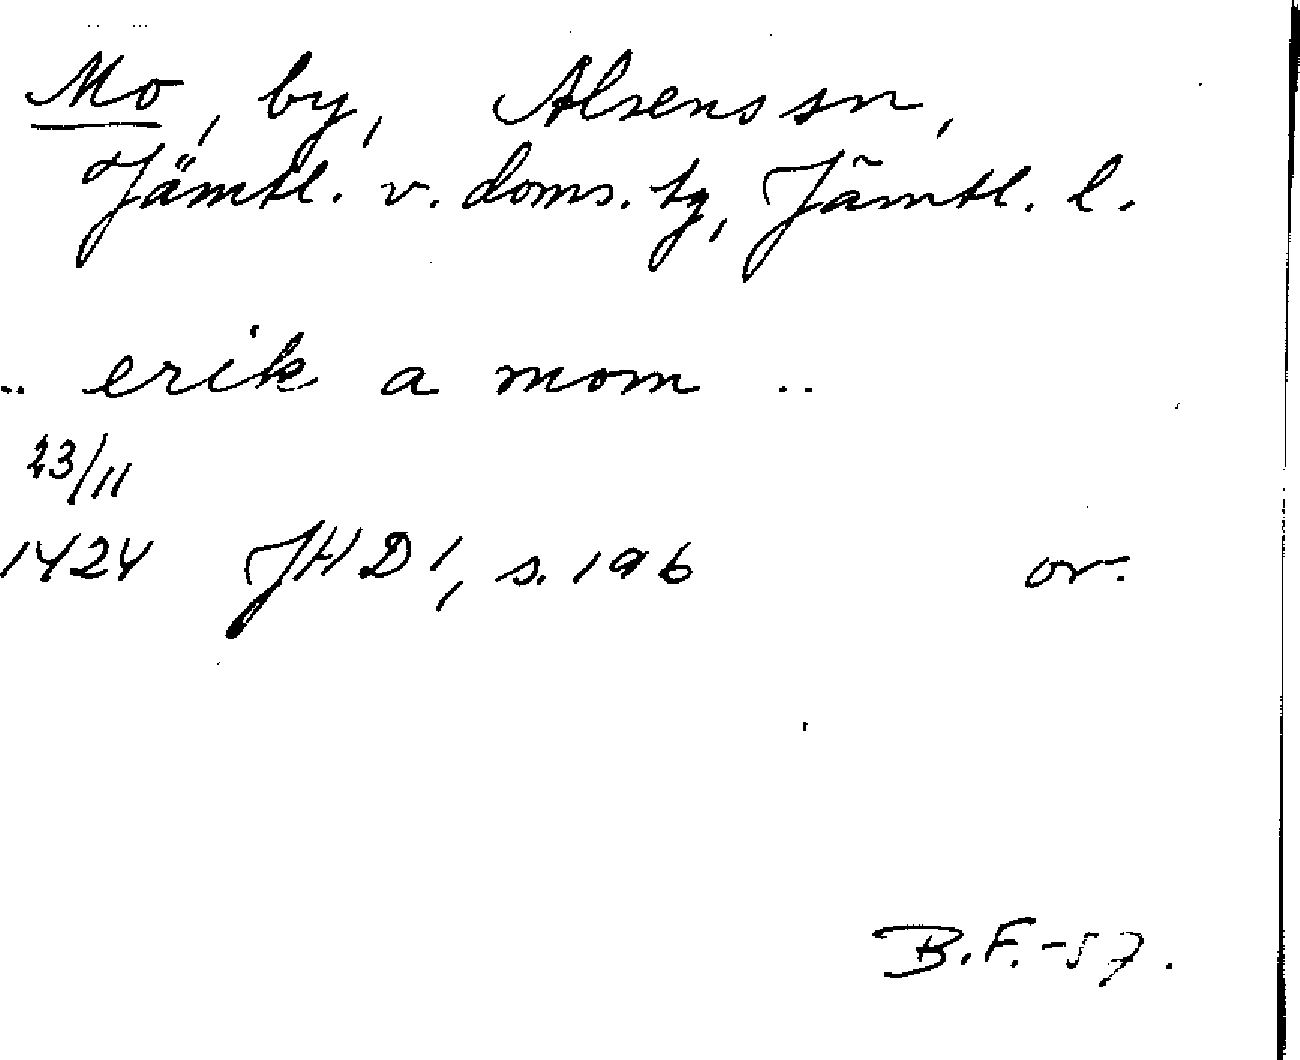 Mo, by, Alsens sn,
Jämtl. v. doms. tg, Jämtl. l.
.. erik a mom ..
23/11
1424 JHD 1, s. 196 or.
B.F.-57.